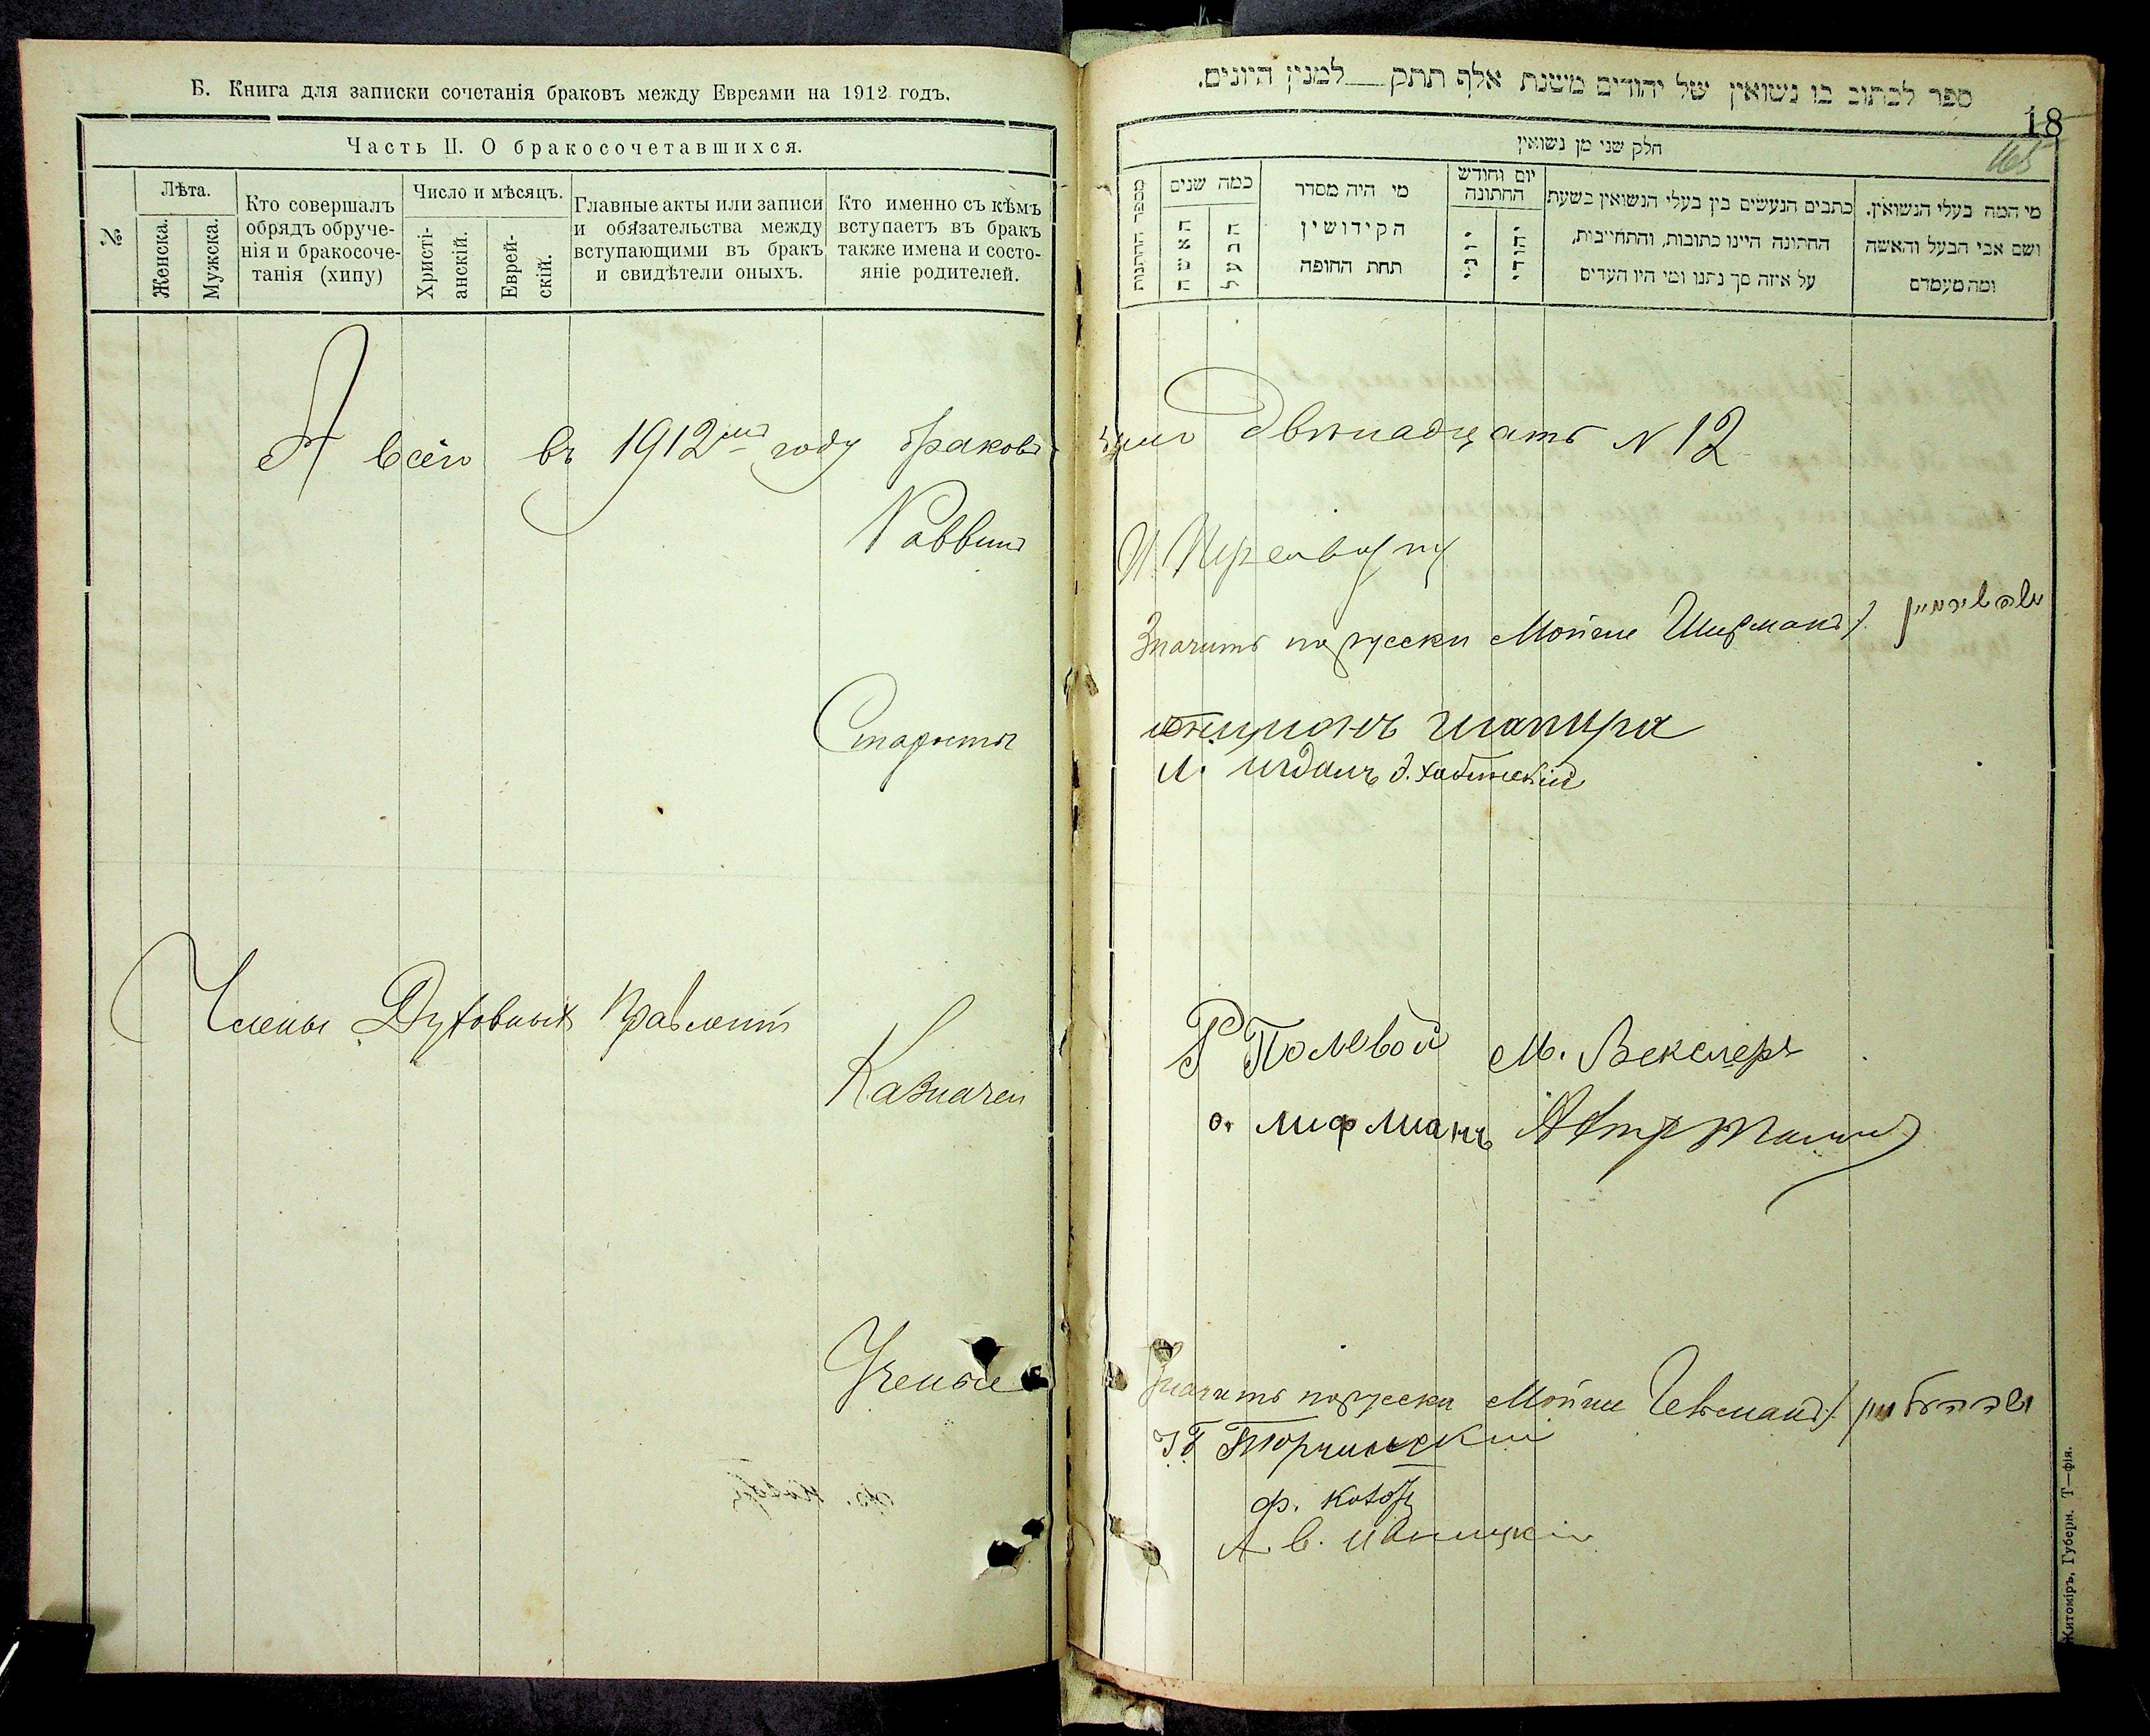 Б. Книга для записки сочетанія браковъ между Евреями на 1912 годъ.
Часть II. О бракосочетавшихся.
№
Лѣта.
Женска.
Мужска.
Кто совершалъ
обрядъ обруче-
нія и бракосоче-
танія (хипу)
Число и мѣсяцъ.
Христі-
анскій.
Еврей-
скій.
Главные акты или записи
и обязательства между
вступающими въ бракъ
и свидѣтели оныхъ.
Кто именно съ кѣмъ
вступаетъ въ бракъ
также имена и состо-
яніе родителей.
А всего въ 1912мъ году браковъ
Раввинъ
Староста
Члены Духовныхъ Правленій
Казначеи
Ученые
ספר לכתוב בו נשואין של יהודים משנת אלף תתק למנין היונים.
18
165
חלק שני מן נשואין
מספר החתונות
כמה שנים
האשה
הבעל
מי היה מסדר
הקידושין
תחת החופה
יום וחודש
החתונה
יוני
יהודי
כתבים הנעשים בין בעלי הנשואין בשעת
החתונה היינו כתובות, והתחייבות,
על איזה סך נתנו ומי היו העדים
מי המה בעלי הנשואין.
ושם אבי הבעל והאשה
ומה מעמדם
Двѣнадцать N 12
Значитъ порусски Мойше Ширманъ). משה שירמאן
шапира
Р Полевой М. Векслеръ
о. лифманъ
Значитъ порусски Мойше
Торчинскій
ф. котör
А. в. ивницкій
Житоміръ, Губерн. Т—фія.